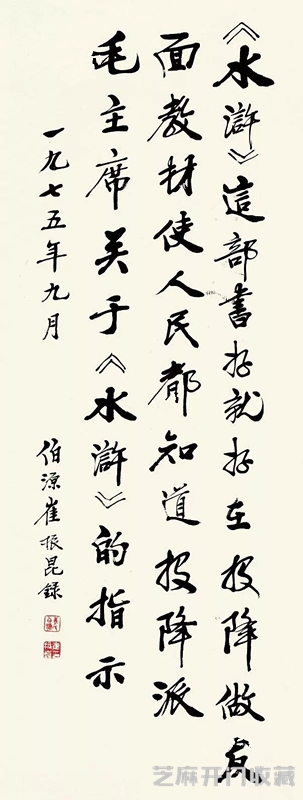 《水滸》這部書好就好在投降做反
面教材使人民都知道投降派
毛主席关于《水滸》的指示
一九七五年九月 伯源崔振昆錄
芝麻开门收藏